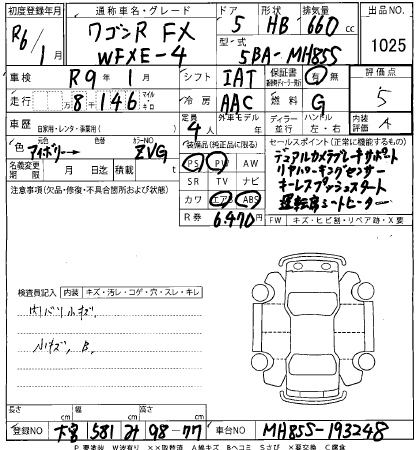 初度登録年月 通称車名・グレード ドア 形状 排気量 出品NO.
R6/1月 ワゴンR FX 5 HB 660 cc 1025
WFXE-4 型・式 5BA-MH85S
車検 R9年1月 シフト IAT 保証書 有・無 評価点
走行 8千146 マイル キロ 冷房 AAC 燃料 G 5
車歴 自家用・レンタ・事業用( ) 定員 4人 外車モデル 年 ディーラー 並行 ハンドル 左・右 内装評価 A
色 アイボリー→ 色替 カラーNO ZVG 装備品(純正品に限る) セールスポイント(正常に機能するもの)
PS PW AW デュアルカメラブレーキサポート
名義変更期限 月 日迄 積載 t SR TV ナビ リヤパーキングセンサー
注意事項(欠品・修復・不具合箇所および状態) カワ エアB ABS キーレスプッシュスタート
R券 6,470円 運転席シートヒーター
FW キズ・ヒビ割・リペア跡・X要
検査員記入 内装 キズ・汚レ・コゲ・穴・スレ・キレ
内バリ小キズ
小キズ、B
長さ cm 幅 cm 高さ cm
登録NO 大宮 581 み 98-77 車台NO MH85S-193248
P要塗装 W波有り XX取替済 A線キズ Bヘコミ Sさび X要交換 C腐食